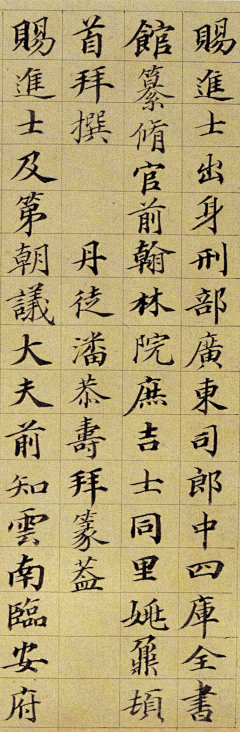 賜進士出身刑部廣東司郎中四庫全書
館纂脩官前翰林院庶吉士同里姚鼐頓
首拜撰　丹徒潘恭壽拜篆蓋
賜進士及第朝議大夫前知雲南臨安府